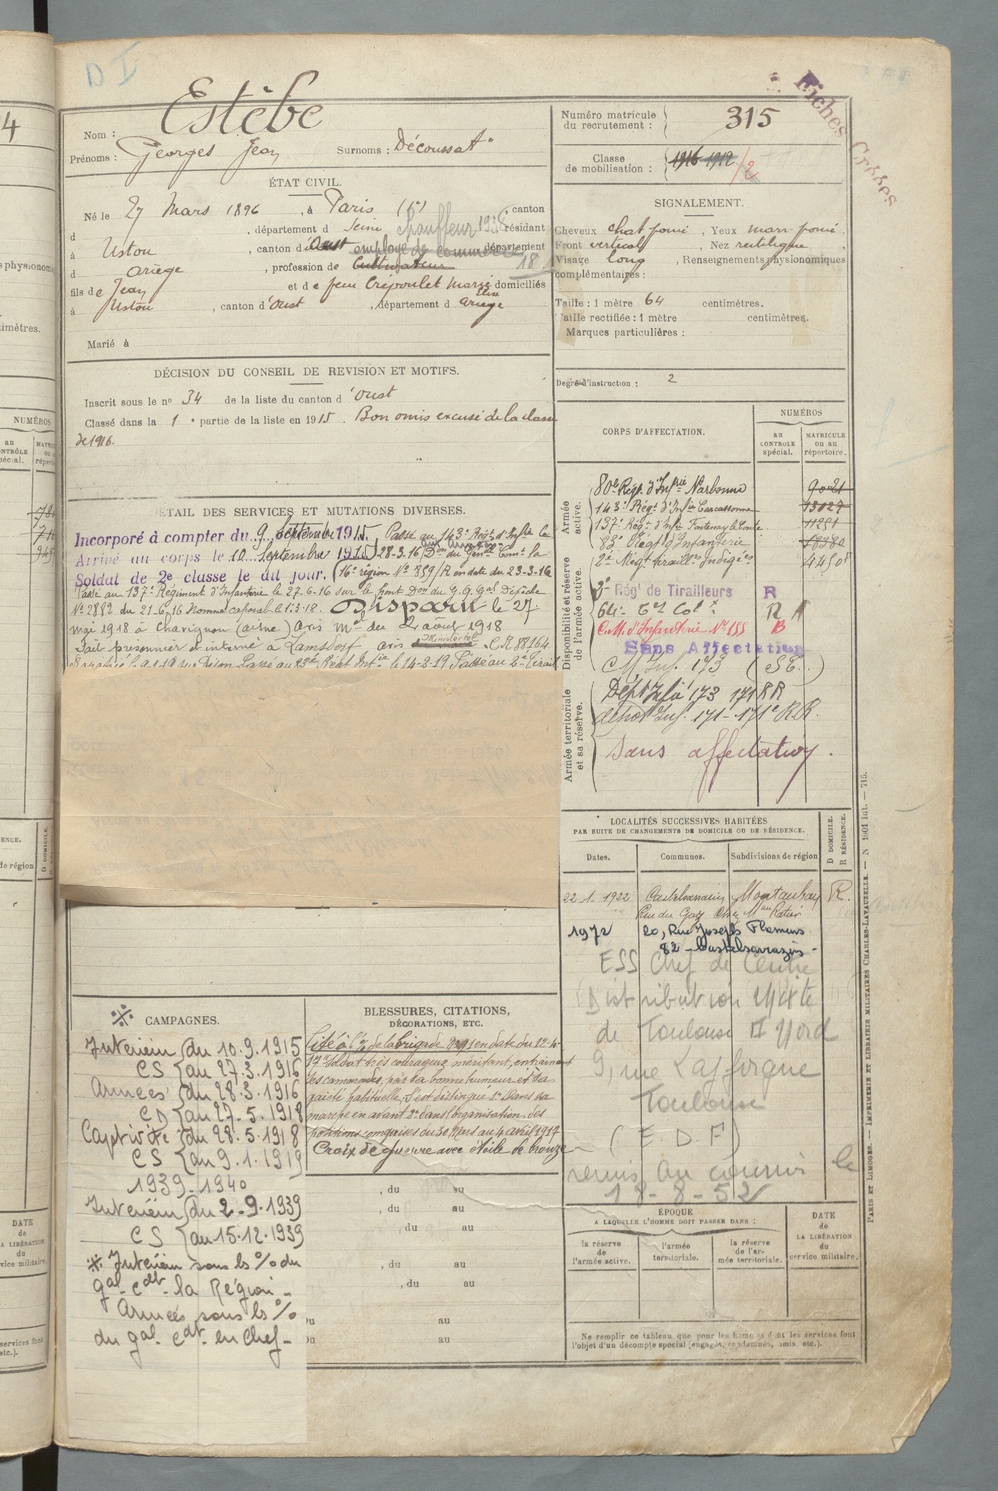 D I
Fiches Croisées
Nom : Estèbe
Prénoms : Georges Jean Surnoms : Découssat
Numéro matricule du recrutement : 315
Classe de mobilisation : 1916 1912 /2
ÉTAT CIVIL.
Né le 27 Mars 1896, à Paris (15e), canton
d , département d Seine Chauffeur 1938 résidant
à Ustou, canton d'Oust employé de commerce département
d Ariège, profession de Cultivateur 18
fils de Jean et de feue Crepoulet Marie Elise domiciliés
à Ustou, canton d'Oust, département d Ariège
Marié à
SIGNALEMENT.
Cheveux chat. foncé, Yeux marr. foncé
Front vertical, Nez rectiligne
Visage long, Renseignements physionomiques
complémentaires :
Taille : 1 mètre 64 centimètres.
Taille rectifiée : 1 mètre centimètres.
Marques particulières :
Degré d'instruction : 2
DÉCISION DU CONSEIL DE REVISION ET MOTIFS.
Inscrit sous le n° 34 de la liste du canton d'Oust
Classé dans la 1e partie de la liste en 1915. Bon omis excusé de la classe
de 1916.
DÉTAIL DES SERVICES ET MUTATIONS DIVERSES.
Incorporé à compter du 9 Septembre 1915. Passé au 143e Régt d'Infie le
Arrivé au corps le 10 Septembre 1915. 28-3-16 Don du Génal Comt la
Soldat de 2e classe le dit jour. 16e région N° 859/R en date du 23-3-16
Passé au 137e Régiment d'Infanterie le 27-6-16 sur le front Don du G.Q.G.
N° 2882 du 21-6-16 Nommé caporal le 1-3-18. Disparu le 27
mai 1918 à Chavignon (aisne) avis mel du 2 août 1918
Fait prisonnier et interné à Lamsdorf avis Ministériel C.R. 88764
Rapatrié le 9.1.19 Passé au 83e Régt Infie le 14-2-19 Passé au 2e Tirail
CORPS D'AFFECTATION.
NUMÉROS
AU CONTRÔLE spécial.
MATRICULE OU AU répertoire.
Armée active.
80e Régt d'Infie Narbonne 9021
143e Régt d'Infie Carcassonne 13027
137e Régt d'Infie Fontenay le Comte 11221
83e Régt d'Infanterie
2e Régt Tiraill.
Disponibilité et réserve de l'armée active.
3e Rég' de Tirailleurs R
64e
C.M. d'Infanterie N° 155 B
Sans Affectation
C M Inf. 173 (S.E.)
Armée territoriale et sa réserve.
Dépt Infie 173 171 R R
dépôt Inf. 171-171e R.R.
Sans affectation.
LOCALITÉS SUCCESSIVES HABITÉES
PAR SUITE DE CHANGEMENTS DE DOMICILE OU DE RÉSIDENCE.
Dates. Communes. Subdivisions de région D DOMICILE. R RÉSIDENCE.
22-1-1922 Castelsarrasin Montauban R.
Rue du Gaz
1972 20, Rue Joseph Flamens
82 - Castelsarrasin -
ESS Chef de Centre
Distribution Mixte
de Toulouse II Nord
9, rue Lafforgue
Toulouse
(E.D.F)
remis au courrier le
18-8-52
CAMPAGNES.
Intérieur du 10.9.1915
CS au 27.3.1916
Armées du 28.3.1916
CD au 27.5.1918
Captivité du 28.5.1918
CS au 9.1.1919
1939-1940
Intérieur du 2-9-1939
CS au 15.12.1939
Intérieur sous ls % du
gal cdt la Région -
Armées sous ls %
du gal cdt en chef -
BLESSURES, CITATIONS, DÉCORATIONS, ETC.
Cité à l'o/ de la brigade
"Soldat très courageux, méritant, entrainant
ses camarades, par sa bonne humeur et sa
gaieté habituelle. S'est distingué 1° Dans sa
marche en avant 2° dans l'organisation des
positions conquises du 30 Mars au 4 avril 1917
Croix de guerre avec étoile de bronze
, du au
, du au
, du au
, du au
, du au
Du au
Du au
ÉPOQUE
A LAQUELLE L'HOMME DOIT PASSER DANS :
la réserve de l'armée active.
l'armée territoriale.
la réserve de l'armée territoriale.
DATE de LA LIBÉRATION du service militaire.
Ne remplir ce tableau que pour les hommes dont les services font
l'objet d'un décompte spécial (engagés, condamnés, omis, etc.).
PARIS ET LIMOGES. — IMPRIMERIE ET LIBRAIRIE MILITAIRES CHARLES-LAVAUZELLE. —